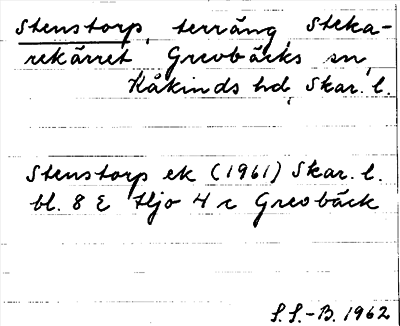 Stenstorp, terräng Steka-
rekärret Grevbäcks sn,
Kåkinds hd, Skar. l.
Stenstorp ek (1961) Skar. l.
bl. 8 E Hjo 4 c Grevbäck
S.S.-B. 1962